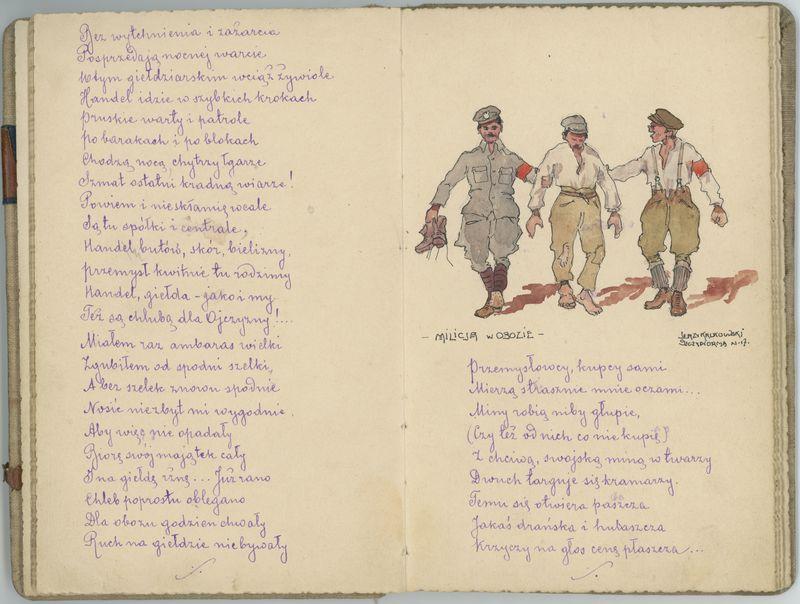 Bez wytchnienia i zażarcia
Posprzedają nocnej warcie
W tym giełdziarskim wciąż żywiole
Handel idzie w szybkich krokach
Pruskie warty i patrole
Po barakach i po blokach
Chodzą nocą, chytrzy łgarze
Szmat ostatni kradną wiarze!
Powiem i nieskłamię wcale
Są tu spółki i centrale,
Handel butów, skór, bielizny,
Przemysł kwitnie tu rodzimy
Handel, giełda - jako i my
Też są chlubą dla Ojczyzny!...
Miałem raz ambaras wielki
Zgubiłem od spodni szelki,
A bez szelek znowu spodnie
Nosić niezbyt mi wygodnie.
Aby więc nie opadały
Biorę swój majątek cały
I na giełdę rżnę... Już rano
Chleb poprostu oblegano
Dla obozu godzien chwały
Ruch na giełdzie niebywały
- MILICJA W OBOZIE -
JERZY KRUKOWSKI
SZCZYPIORNA XI-17.
Przemysłowcy, kupcy sami
Mierzą strasznie mnie oczami...
Miny robią niby głupie,
(Czy też od nich co nie kupię?)
Z chciwą, swojską miną w twarzy
Dwuch targuje się kramarzy.
Temu się otwiera paszcza
Jakaś drańska i hulaszcza
Krzyczy na głos cenę płaszcza...